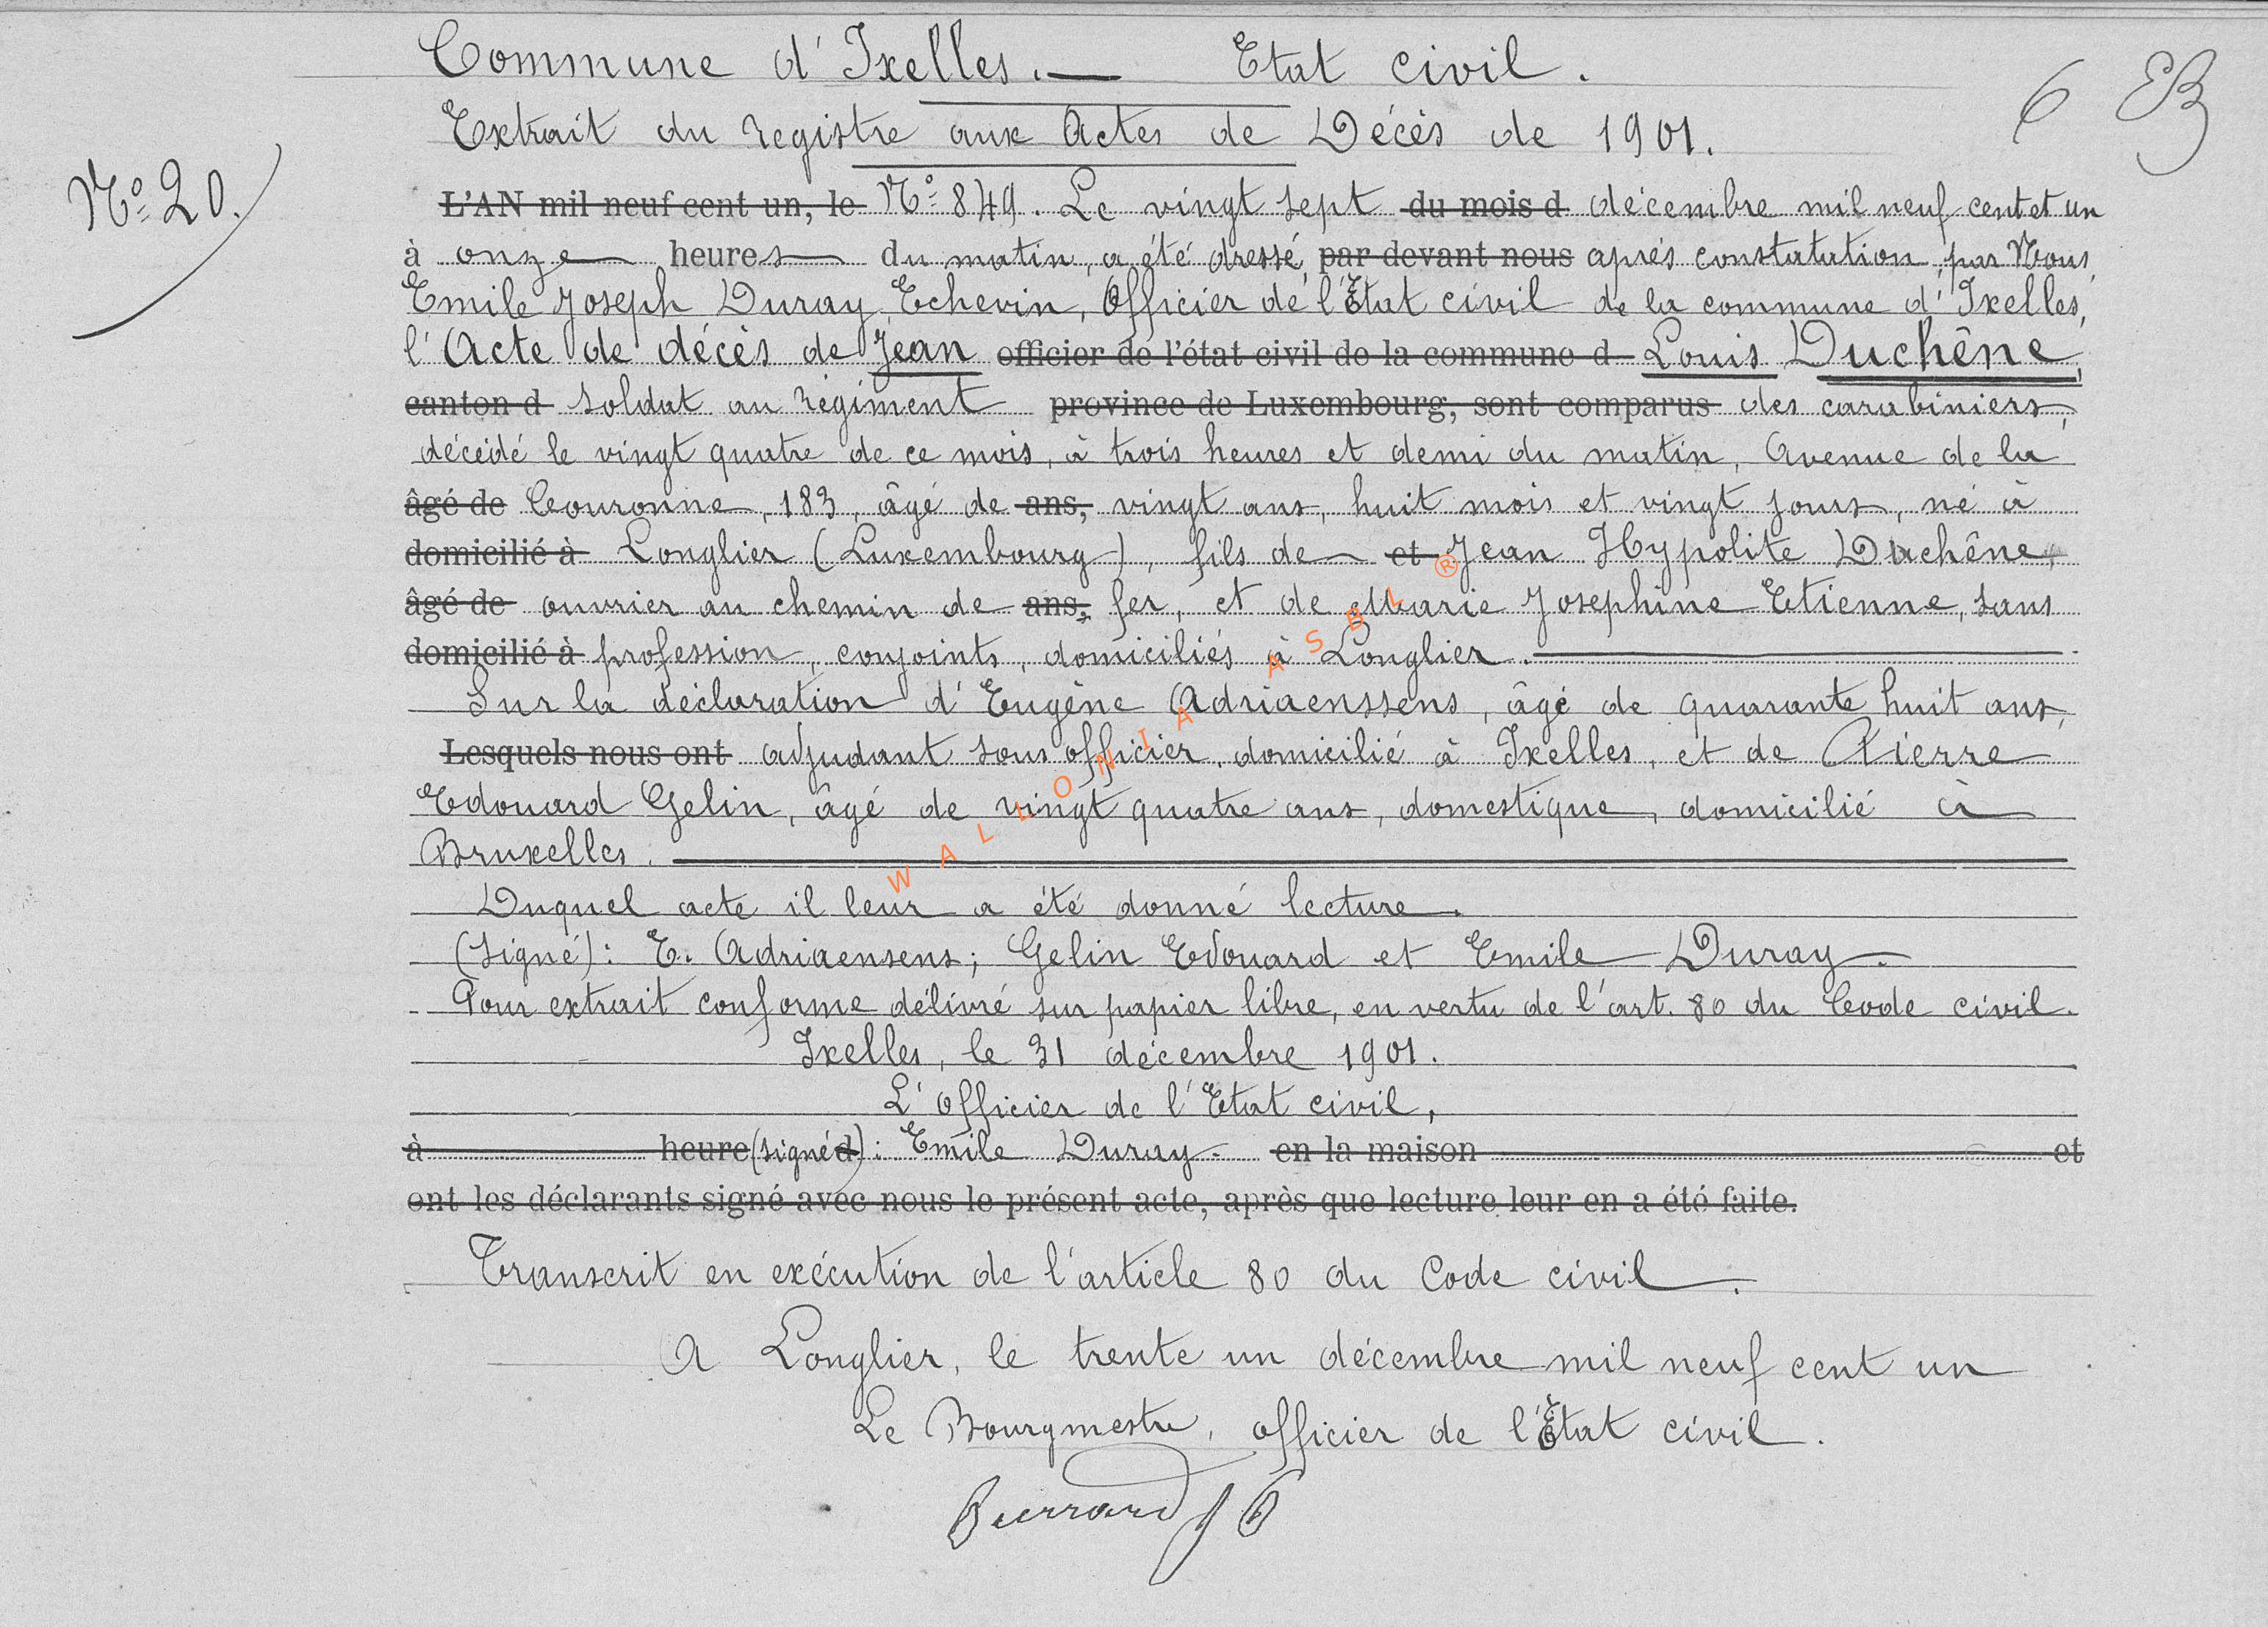 Commune d'Ixelles. — Etat civil.
6 EB
Extrait du registre aux Actes de Décès de 1901.
N° 20.
L'AN mil neuf cent un, le N° 849. Le vingt sept du mois d décembre mil neuf cent et un
à onze heures du matin, a été dressé, par devant nous après constatation, par Nous,
Emile Joseph Duray, Echevin, Officier de l'Etat civil de la commune d'Ixelles,
l'Acte de décès de Jean officier de l'état civil de la commune d Louis Duchêne,
canton d soldat au régiment province de Luxembourg, sont comparus des carabiniers,
décédé le vingt quatre de ce mois, à trois heures et demi du matin, Avenue de la
âgé de Couronne, 183, âgé de ans, vingt ans, huit mois et vingt jours, né à
domicilié à Longlier (Luxembourg), fils de et Jean Hypolite Duchêne,
âgé de ouvrier au chemin de ans, fer, et de Marie Josephine Etienne, sans
domicilié à profession, conjoints, domiciliés à Longlier.
Sur la déclaration d'Eugène Adriaenssens, âgé de quarante huit ans,
Lesquels nous ont adjudant sous officier, domicilié à Ixelles, et de Pierre
Edouard Gelin, âgé de vingt quatre ans, domestique, domicilié à
Bruxelles.
WALLONIA ASBL ®
Duquel acte il leur a été donné lecture.
(signé): E. Adriaensens; Gelin Edouard et Emile Duray.
Pour extrait conforme délivré sur papier libre, en vertu de l'art. 80 du Code civil.
Ixelles, le 31 décembre 1901.
L'Officier de l'Etat civil,
à heure (signé d): Emile Duray. en la maison et
ont les déclarants signé avec nous le présent acte, après que lecture leur en a été faite.
Transcrit en exécution de l'article 80 du Code civil.
A Longlier, le trente un décembre mil neuf cent un
Le Bourgmestre, officier de l'Etat civil.